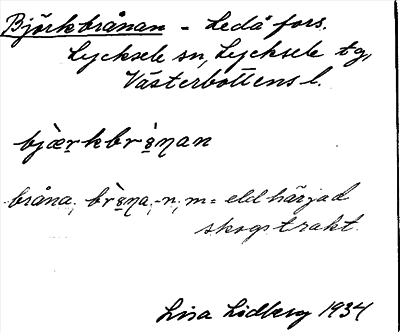 Björkbrånan - Ledå fors.
Lycksele sn, Lycksele tg,
Västerbottens l.
bjæ̀rkbrånan
bråna, brǻna, -n, m = eldhärjad
skogstrakt.
Lisa Lidberg 1934